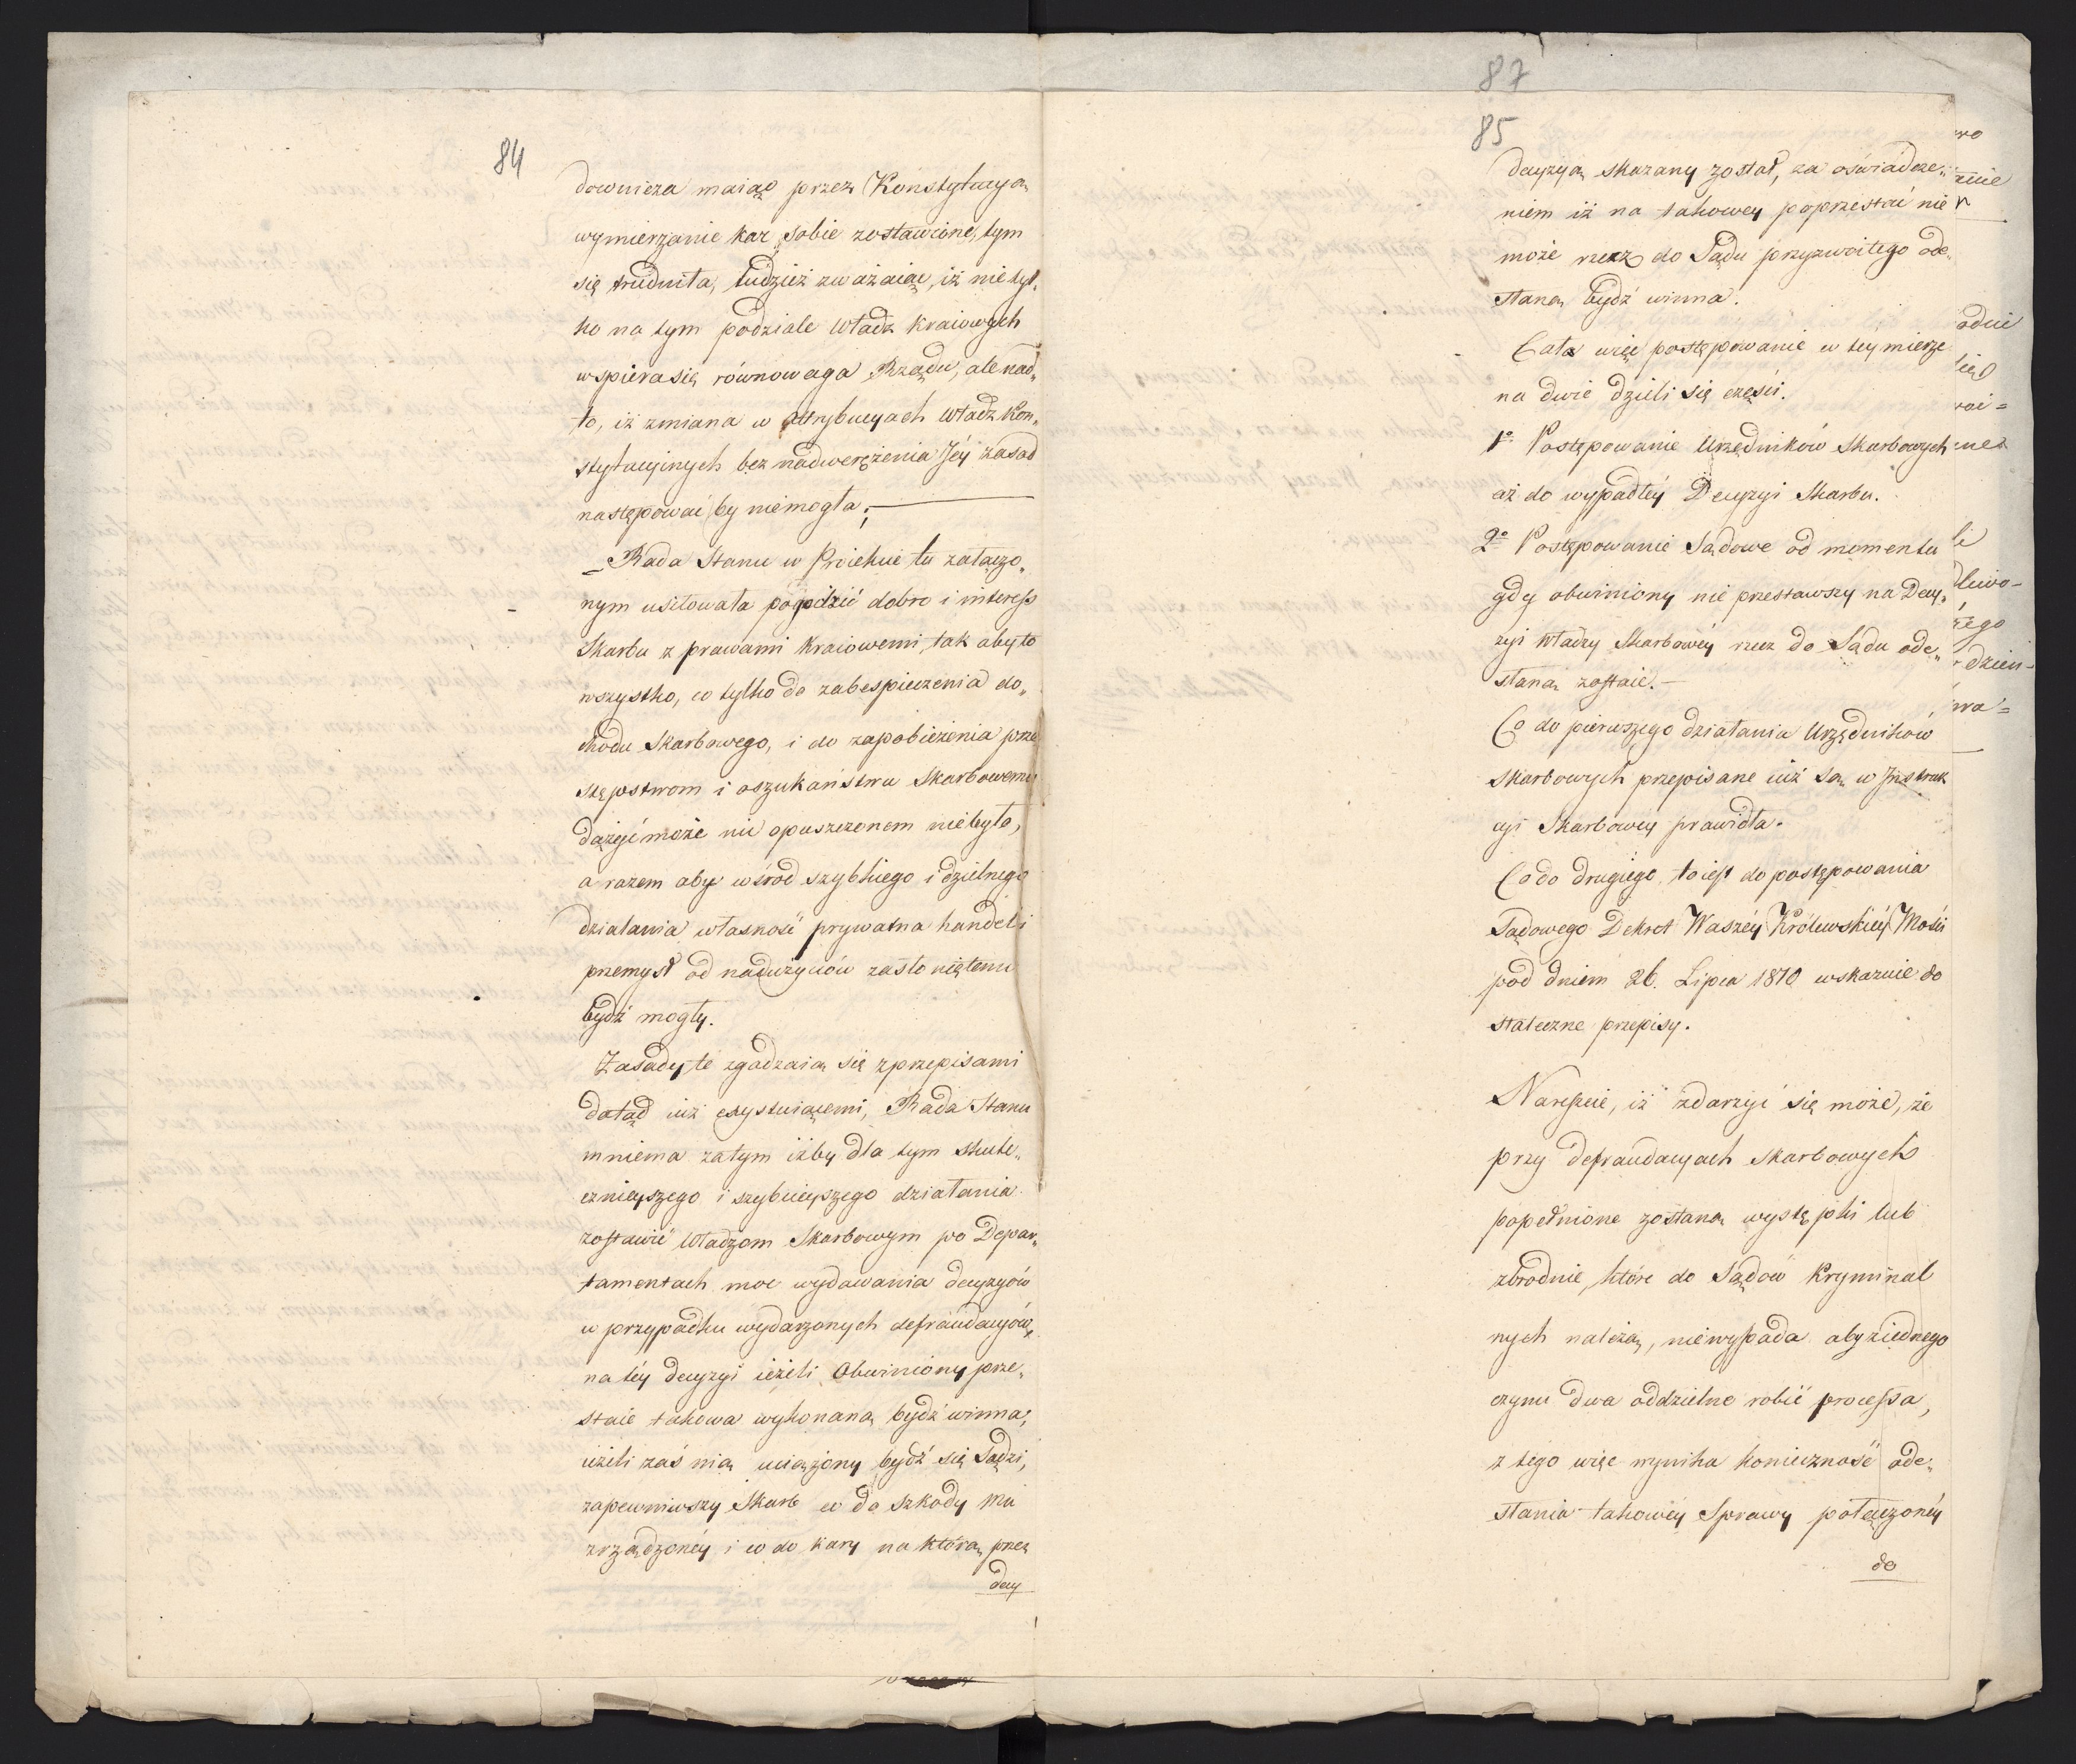 84
downicza maiąc przez Konstytucyą
wymierzanie kar sobie zostawione, tym
się trudniła, tudzież zważaiąc, iż nie tyl„
ko na tym podziale Władz kraiowych
wspiera się równowaga Rządu, ale nad„
to, iż zmiana w attrybucyach Władz Kon„
stytucyinych bez nadwerężenia Jéy zasad
następować by niemogła;
Rada Stanu w Proiekcie tu załączo„
nym usiłowała pogodzić dobro i interess
Skarbu z prawami kraiowemi, tak aby to
wszystko, co tylko do zabespieczenia do„
chodu Skarbowego, i do zapobieżenia prze
stępstwom i oszukaństwu Skarbowemu
dążyć może nic opuszczonem niebyło,
a razem aby wśród szybkiego i dzielnego
działania własność prywatna handel i
przemysł od nadużyciów zasłoniętemi
bydź mogły.
Zasady te zgadzaią się z przepisami
dotąd iuż exystuiącemi, Rada Stanu
mniema zatym iżby dla tym skute„
cznieyszego i szybcieyszego działania
zostawić Władzom Skarbowym po Depar„
tamentach moc wydawania decyzyów
w przypadku wydarzonych defraudacyów,
na téy decyzyi ieżeli Obwiniony prze„
staie takowa wykonaną bydź winna,
ieżeli zaś nią uciążony bydź się sądzi,
zapewniwszy Skarb co do szkody mu
zrządzonéy i co do kary na którą przez
decy
87
85
decyzyą skazany został, za oświadcze„
niem iż na takowey poprzestać nie
może rzecz do Sądu przyzwoitego ode„
słaną bydź winna.
Całe więc postępowanie w téy mierze
na dwie dzieli się części.
1o Postępowanie Urzędników Skarbowych
aż do wypadłéy Decyzyi Skarbu.
2o Postępowanie Sądowe od momentu
gdy obwiniony nie przestawszy na Decy„
zyi Władzy Skarbowéy rzecz do Sądu ode„
słaną zostaie.
Co do pierwszego działania Urzędników
Skarbowych przepisane iuż są w Instruk
cyi Skarbowey prawidła.
Co do drugiego, to iest do postępowania
Sądowego Dekret Waszéy Królewskiéy Mości
pod dniem 26. Lipca 1810 wskazuie do
stateczne przepisy.
Nareszcie, iż zdarzyć się może, że
przy defraudacyach Skarbowych
popełnione zostaną występki lub
zbrodnie, które do Sądów Kryminal
nych należą, niewypada aby ziednego
czynu dwa oddzielne robić processa,
z tego więc wynika konieczność ode„
słania takowéy Sprawy połączonéy
do